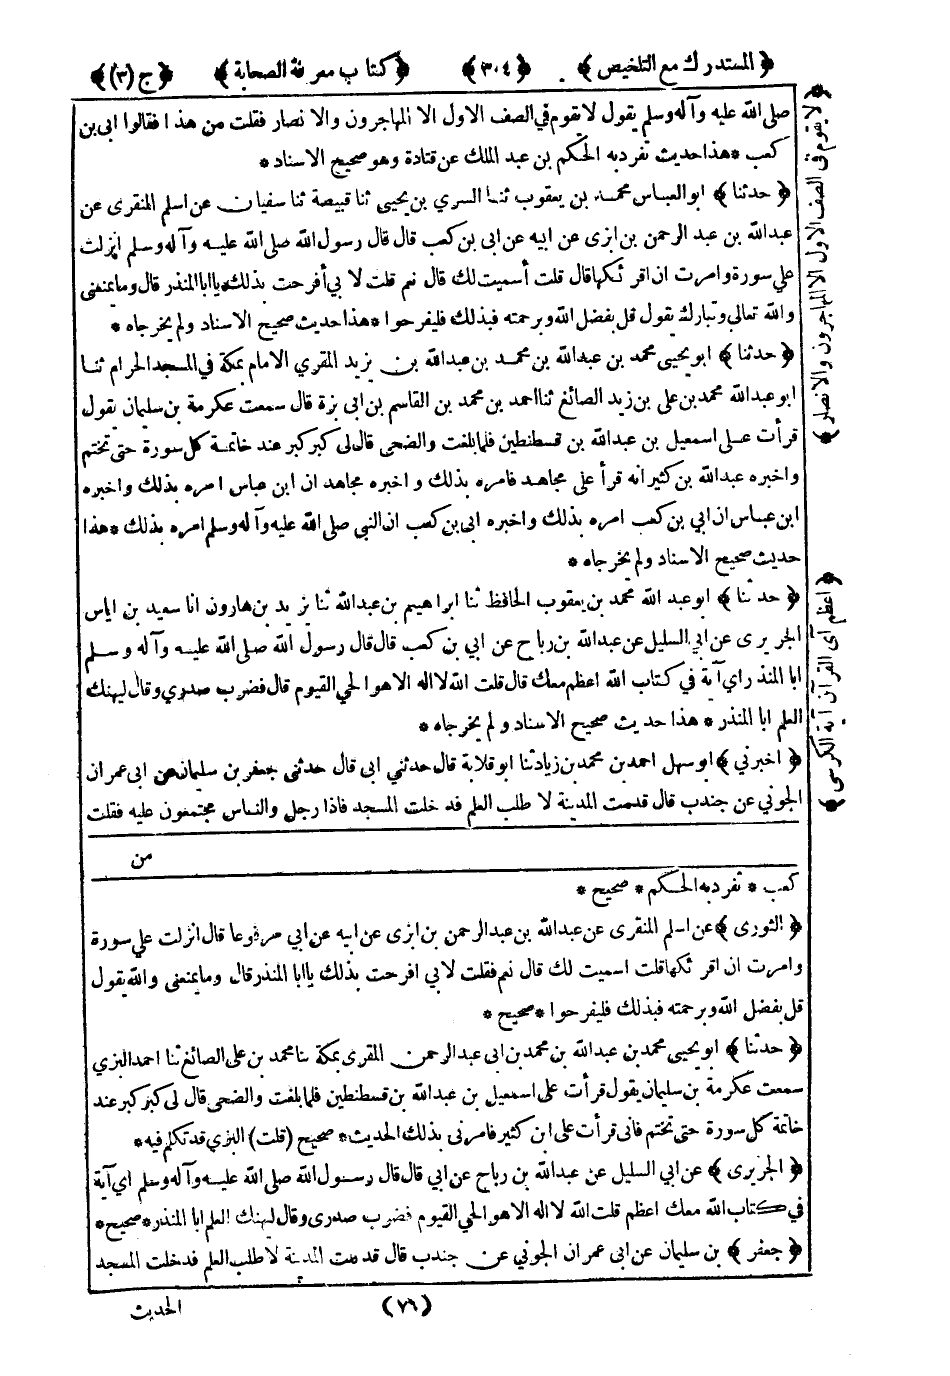 ﴿ المستدرك مع التلخيص ﴾ ﴿ ٣٠٤ ﴾ ﴿ كتاب معرفة الصحابة ﴾ ﴿ ج (٣) ﴾
صلى الله عليه وآله وسلم يقول لا يقوم في الصف الاول الا المهاجرون والانصار فقلت من هذا فقالوا ابى بن
كعب * هذا حديث تفرد به الحكم بن عبد الملك عن قتادة وهو صحيح الاسناد *
﴿ حدثنا ﴾ ابو العباس محمد بن يعقوب ثنا السري بن يحيى ثنا قبيصة ثنا سفيان عن اسلم المنقرى عن
عبد الله بن عبد الرحمن بن ابزى عن ابيه عن ابى بن كعب قال قال رسول الله صلى الله عليه وآله وسلم انزلت
علي سورة وامرت ان اقرئكها قال قلت أسميت لك قال نعم قلت لابي أفرحت بذلك يا ابا المنذر قال وما يمنعنى
والله تعالى وتبارك يقول قل بفضل الله وبرحمته فبذلك فليفرحوا * هذا حديث صحيح الاسناد ولم يخرجاه *
﴿ حدثنا ﴾ ابو يحيى محمد بن عبد الله بن محمد بن عبد الله بن يزيد المقري الامام بمكة في المسجد الحرام ثنا
ابو عبد الله محمد بن على بن زيد الصائغ ثنا احمد بن محمد بن القاسم بن ابى بزة قال سمعت عكرمة بن سليمان يقول
قرأت على اسمعيل بن عبد الله بن قسطنطين فلما بلغت والضحى قال لى كبر كبر عند خاتمة كل سورة حتى تختم
واخبره عبد الله بن كثير انه قرأ على مجاهد فامره بذلك واخبره مجاهد ان ابن عباس امره بذلك واخبره
ابن عباس ان ابي بن كعب امره بذلك واخبره ابى بن كعب ان النبي صلى الله عليه وآله وسلم امره بذلك * هذا
حديث صحيح الاسناد ولم يخرجاه *
﴿ حدثنا ﴾ ابو عبد الله محمد بن يعقوب الحافظ ثنا ابراهيم بن عبد الله ثنا يزيد بن هارون انا سعيد بن اياس
الجريرى عن ابي السليل عن عبد الله بن رباح عن ابي بن كعب قال قال رسول الله صلى الله عليه وآله وسلم
ابا المنذر اي آية في كتاب الله اعظم معك قال قلت الله لا اله الا هو الحي القيوم قال فضرب صدري وقال ليهنك
العلم ابا المنذر * هذا حديث صحيح الاسناد ولم يخرجاه *
﴿ اخبرني ﴾ ابو سهل احمد بن محمد بن زياد ثنا ابو قلابة قال حدثني ابى قال حدثنى جعفر بن سليمان عن ابى عمران
الجوني عن جندب قال قدمت المدينة لاطلب العلم فدخلت المسجد فاذا رجل والناس مجتمعون عليه فقلت
من
﴿ لا يقوم في الصف الاول الا المهاجرون والانصار ﴾
﴿ اعظم آى القرآن آية الكرسى ﴾
كعب * تفرد به الحكم * صحيح *
﴿ الثورى ﴾ عن اسلم المنقرى عن عبد الله بن عبد الرحمن بن ابزى عن ابيه عن ابي مرفوعا قال انزلت علي سورة
وامرت ان اقرئكها قلت اسميت لك قال نعم فقلت لابي افرحت بذلك يا ابا المنذر قال وما يمنعنى والله يقول
قل بفضل الله وبرحمته فبذلك فليفرحوا * صحيح *
﴿ حدثنا ﴾ ابو يحيى محمد بن عبد الله بن محمد بن ابى عبد الرحمن المقرى بمكة ثنا محمد بن على الصائغ ثنا احمد البزي
سمعت عكرمة بن سليمان يقول قرأت على اسمعيل بن عبد الله بن قسطنطين فلما بلغت والضحى قال لى كبر كبر عند
خاتمة كل سورة حتى تختم فانى قرأت على ابن كثير فامرنى بذلك الحديث * صحيح (قلت) البزي قد تكلم فيه *
﴿ الجريرى ﴾ عن ابي السليل عن عبد الله بن رباح عن ابي قال قال رسول الله صلى الله عليه وآله وسلم اي آية
في كتاب الله معك اعظم قلت الله لا اله الا هو الحي القيوم فضرب صدرى وقال ليهنك العلم ابا المنذر * صحيح *
﴿ جعفر ﴾ بن سليمان عن ابى عمران الجوني عن جندب قال قدمت المدينة لاطلب العلم فدخلت المسجد
(٧٦) الحديث